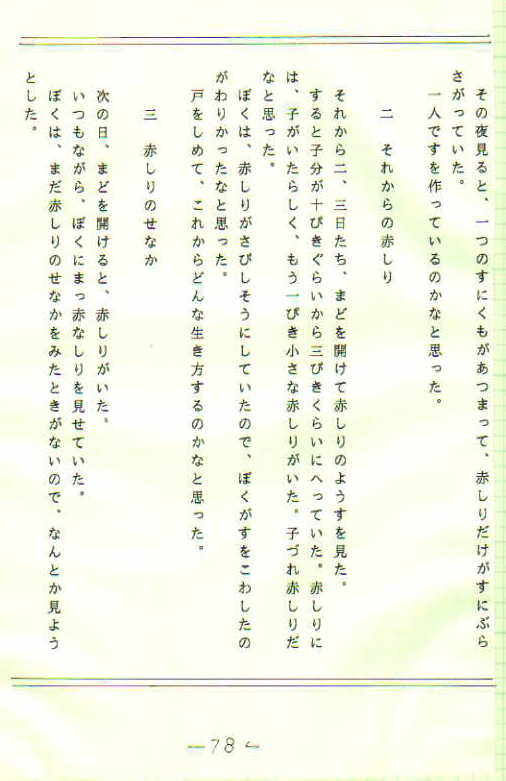 その夜見ると、一つのすにくもがあつまって、赤しりだけがすにぶら
さがっていた。
一人ですを作っているのかなと思った。
二　それからの赤しり
それから二、三日たち、まどを開けて赤しりのようすを見た。
すると子分が十ぴきぐらいから三びきくらいにへっていた。赤しりに
は、子がいたらしく、もう一ぴき小さな赤しりがいた。子づれ赤しりだ
なと思った。
ぼくは、赤しりがさびしそうにしていたので、ぼくがすをこわしたの
がわりかったなと思った。
戸をしめて、これからどんな生き方するのかなと思った。
三　赤しりのせなか
次の日、まどを開けると、赤しりがいた。
いつもながら、ぼくにまっ赤なしりを見せていた。
ぼくは、まだ赤しりのせなかをみたときがないので、なんとか見よう
とした。
—78—